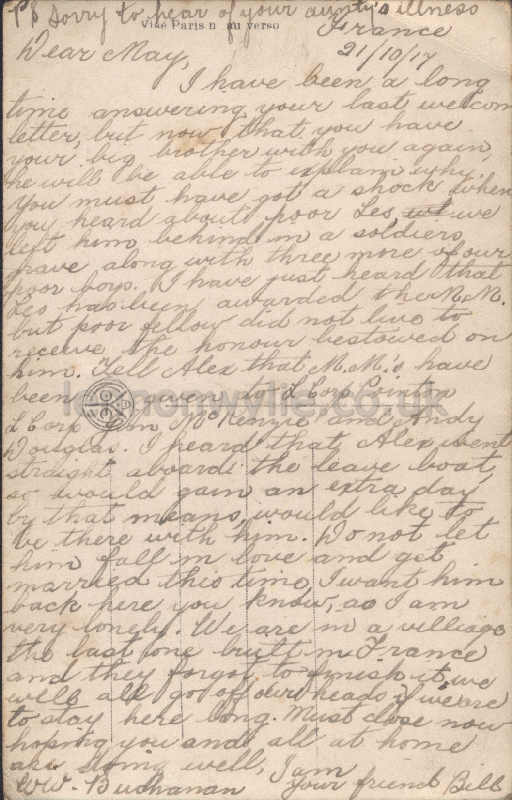 PS Sorry to hear of your aunty's illness
Visé Paris n au verso
France
21/10/17
Dear May,
I have been a long
time answering your last welcom
letter, but now that you have
your big brother with you again,
he will be able to explain why.
You must have got a shock when
you heard about poor Les, we
left him behind in a soldiers
grave along with three more of our
poor boys. I have just heard that
Les has been awarded the M.M.
but poor fellow did not live to
receive the honour bestowed on
him. Tell Alex that M.M.'s have
been given to L Corp
L Corp McKenzie and Andy
Douglas. I heard that Alex went
straight aboard the leave boat,
so would gain an extra day
by that means, would like to
be there with him. Do not let
him fall in love and get
married this time, I want him
back here you know, as I am
very lonely. We are in a villiage
the last one built in France
and they forgot to finish it, we
will all go off our heads if we are
to stay here long. Must close now
hoping you and all at home
are doing well, I am
WW. Buchanan your friend Bill
lennonwylie.co.uk